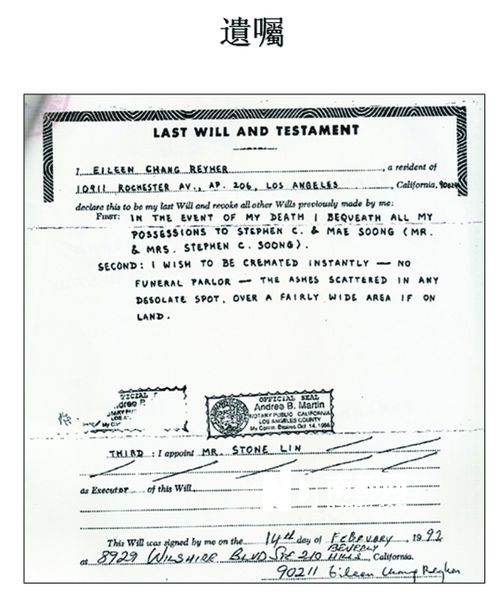 遺囑
LAST WILL AND TESTAMENT
I EILEEN CHANG REYHER, a resident of
10911 ROCHESTER AV., AP. 206, LOS ANGELES, California, 90024
declare this to be my last Will and revoke all other Wills previously made by me:
FIRST: IN THE EVENT OF MY DEATH I BEQUEATH ALL MY
POSSESSIONS TO STEPHEN C. & MAE SOONG (MR.
& MRS. STEPHEN C. SOONG).
SECOND: I WISH TO BE CREMATED INSTANTLY — NO
FUNERAL PARLOR — THE ASHES SCATTERED IN ANY
DESOLATE SPOT, OVER A FAIRLY WIDE AREA IF ON
LAND.
OFFICIAL SEAL
Andrea B. Martin
NOTARY PUBLIC CALIFORNIA
LOS ANGELES COUNTY
My Comm. Expires Oct 14,
THIRD: I appoint MR. STONE LIN
as Executor of this Will.
This Will was signed by me on the 14th day of FEBRUARY, 1992
at 8929 WILSHIRE BLVD STE 210 BEVERLY HILLS, California.
90211 Eileen Chang Reyher